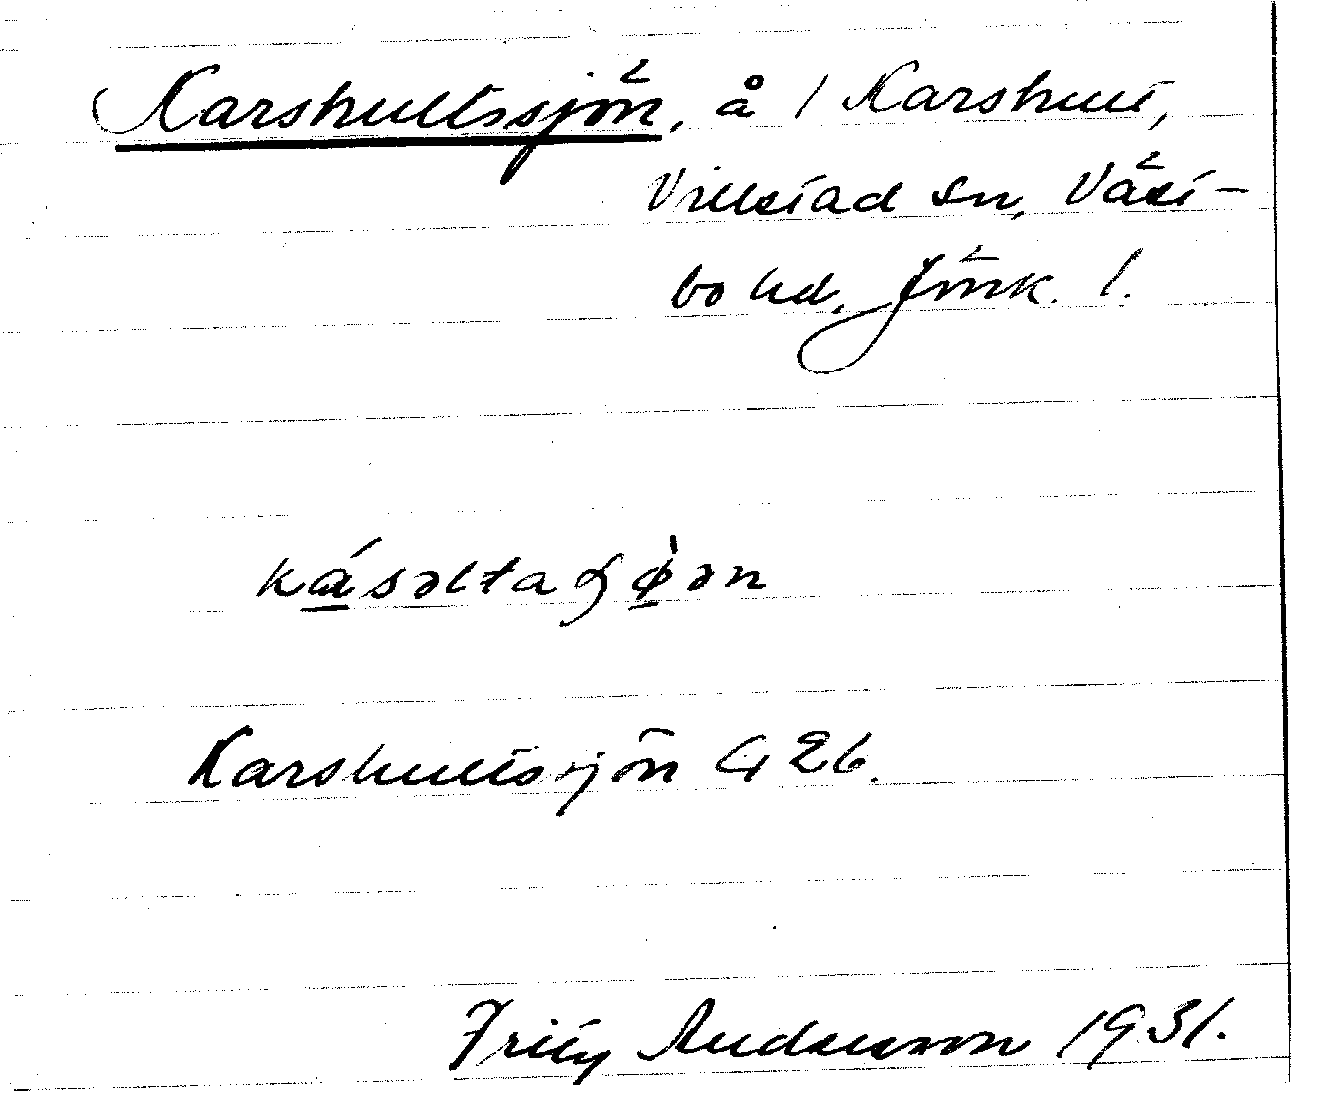 Karshultssjön, å / Karshult,
Villstad sn, Väst-
bo hd, Jönk. l.
kásəltaʃø̀ən
Karshultssjön G 26.
Fritz Andersson 1931.